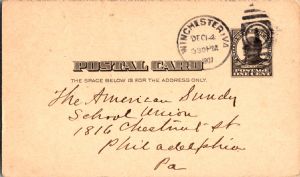 WINCHESTER, VA.
DEC 4
530 PM
1907
POSTAL CARD
THE SPACE BELOW IS FOR THE ADDRESS ONLY.
POSTAGE
ONE CENT
The American Sundy
School Union
1816 Chestnut st
Philadelphia
Pa